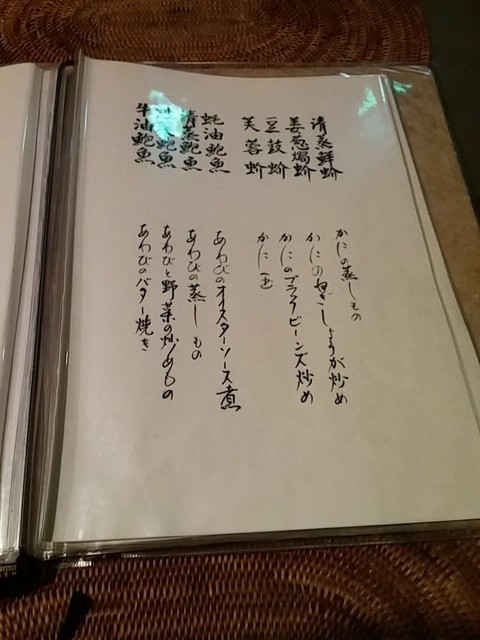 清蒸鮮蚧
姜葱焗蚧
豆鼓蚧
芙蓉蚧
蚝油鮑魚
清蒸鮑魚
鮑魚
牛油鮑魚
かにの蒸しもの
かにのねぎしょうが炒め
かにのブラックビーンズ炒め
かに玉
あわびのオイスターソース煮
あわびの蒸しもの
あわびと野菜の炒めもの
あわびのバター焼き